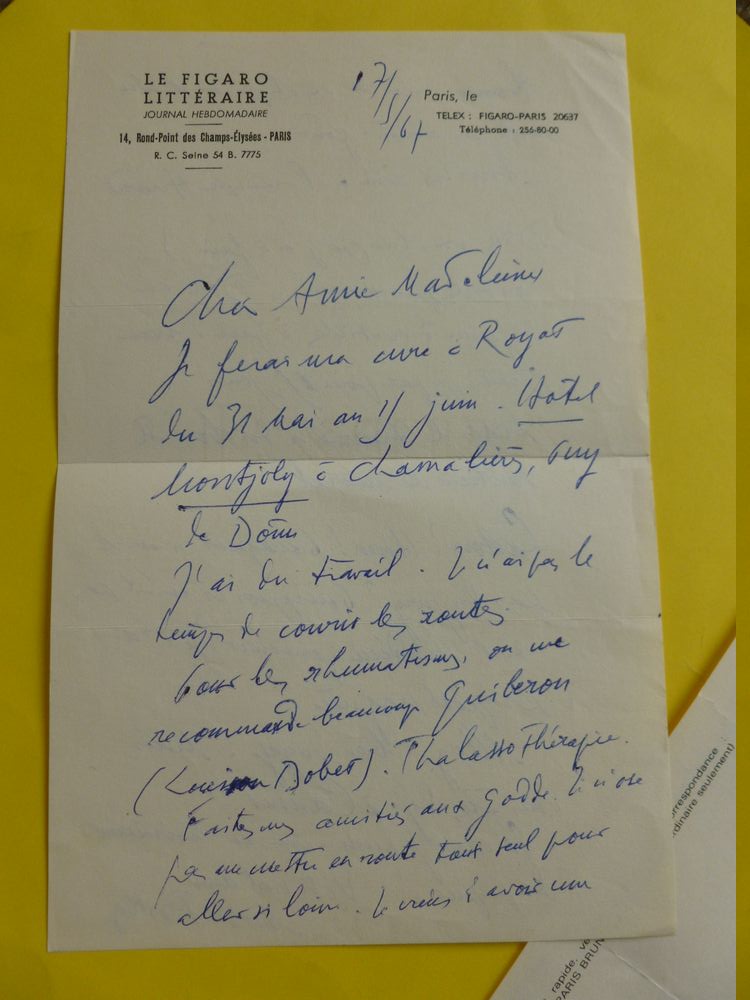 LE FIGARO
LITTÉRAIRE
JOURNAL HEBDOMADAIRE
14, Rond-Point des Champs-Élysées - PARIS
R. C. Seine 54 B. 7775
17/5/67
Paris, le
TELEX : FIGARO-PARIS 20637
Téléphone : 256-80-00
Annie Madeleine
Je ferai ma cure à Royat
du 31 Mai au 15 juin. Hôtel
Montjoly à Chamalières, Puy
de Dôme
J'ai du travail. Je n'ai pas le
temps de courir les routes.
Pour les rhumatismes, on me
recommande beaucoup Quiberon
(Louison Bobet). Thalassothérapie.
Faites mes amitiés aux Je n'ose
pas me mettre en route tout seul pour
aller si loin. Je viens d'avoir une
rrespondance
rdinaire seulement)
rapide, ve
PARIS BRUN